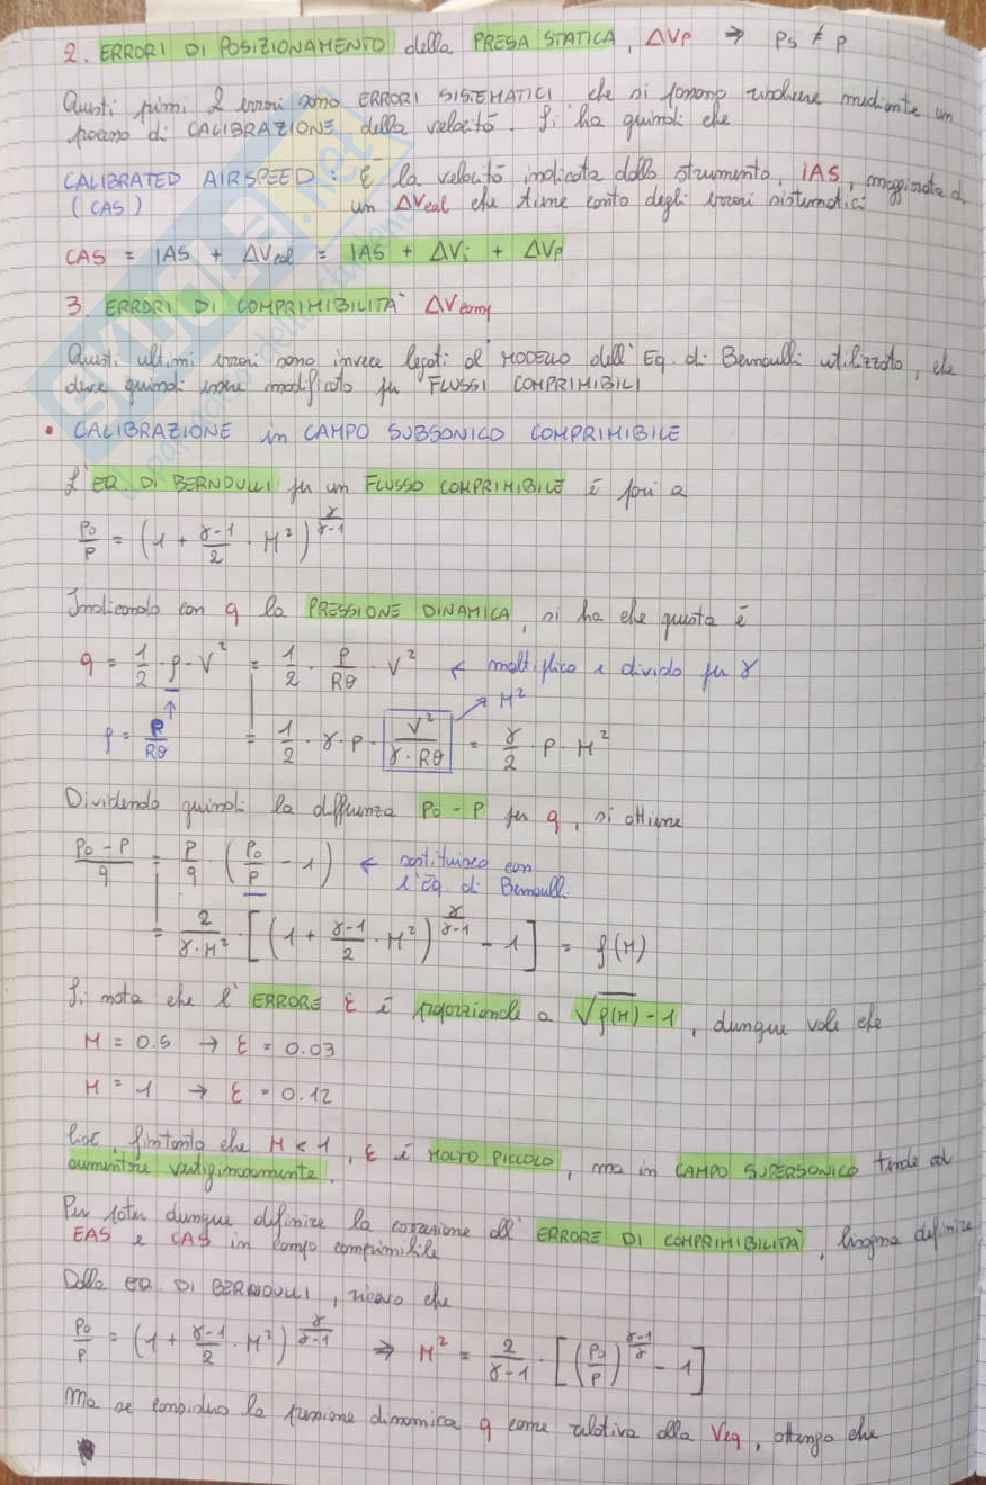 2. ERRORI DI POSIZIONAMENTO della PRESA STATICA, ΔVp → ps ≠ p
Questi primi 2 errori sono ERRORI SISTEMATICI che si possono risolvere mediante un
processo di CALIBRAZIONE della velocità. Si ha quindi che
CALIBRATED AIRSPEED: È la velocità indicata dallo strumento, IAS, maggiorata di
(CAS) un ΔVcal che tiene conto degli errori sistematici
CAS = IAS + ΔVcal = IAS + ΔVi + ΔVp
3. ERRORI DI COMPRIMIBILITÀ ΔVcomp
Questi ultimi errori sono invece legati al MODELLO dell'Eq. di Bernoulli utilizzato, che
deve quindi essere modificato per FLUSSI COMPRIMIBILI
• CALIBRAZIONE in CAMPO SUBSONICO COMPRIMIBILE
L'EQ DI BERNOULLI per un FLUSSO COMPRIMIBILE è pari a
p0/p = (1 + γ-1/2 · M²)^γ/γ-1
Indicando con q la PRESSIONE DINAMICA, si ha che questa è
q = 1/2 · ρ · V² = 1/2 · P/Rθ · V² ← moltiplico e divido per γ
ρ = P/Rθ = 1/2 · γ · P · V²/γ·Rθ = γ/2 · P · M² → M²
Dividendo quindi la differenza P0 - P per q, si ottiene
P0 - P/q = P/q · (P0/P - 1) ← sostituisco con
l'Eq. di Bernoulli
= 2/γ·M² · [(1 + γ-1/2 · M²)^γ/γ-1 - 1] = f(M)
Si nota che l'ERRORE ε è proporzionale a √f(M) - 1, dunque vale che
M = 0.5 → ε = 0.03
M = 1 → ε = 0.12
Cioè, fintanto che M < 1, ε è MOLTO PICCOLO, ma in CAMPO SUPERSONICO tende ad
aumentare vertiginosamente.
Per poter dunque definire la correzione all'ERRORE DI COMPRIMIBILITÀ, bisogna definire
EAS e CAS in campo comprimibile
Dalla EQ. DI BERNOULLI, ricavo che
p0/p = (1 + γ-1/2 · M²)^γ/γ-1 ⇒ M² = 2/γ-1 · [(P0/P)^γ-1/γ - 1]
Ma se considero la pressione dinamica q come relativa alla Veq, ottengo che